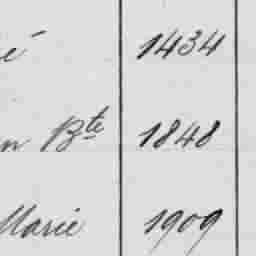 é 1434
n Bte 1848
Marie 1909